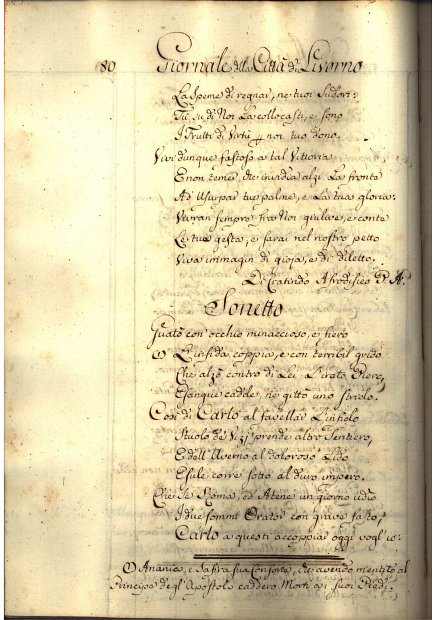 80 Giornale della Città di Livorno
La Speme di regnar, ne' tuoi Sudori:
Tu, su di Noi La collocasti, e sono
I Frutti di Virtù per noi tuo dono.
Vivi dunque fastoso a tal Vittoria
E non temer, che invidia alzi La fronte
Ad Usurpar tue palme, e La tua gloria:
Vivran sempre fra Noi giulive, e conte
Le tue gesta, e sarai nel nostro petto
Viva immagin di gioja, e di diletto.
Di Cratindo Afrodisieo P. A.
Sonetto
Guatò con occhio minaccioso, e fiero
L'infida coppia, e con terribil grido
Che alzò contro di Lei L'irato Piero,
Esangue cadde, ne gittò uno strido.
Così di Carlo al favellar L'infido
Stuolo de' Vizj prende altro Sentiero,
E dell'Averno al doloroso Lido
Esule corre sotto al duro impero.
Che se Roma, ed Atene un giorno udio
I due sommi Orator con grave fasto,
Carlo a questi accoppiar oggi vogl'io:
Anania, e Safira sua Consorte, che avendo mentito al
Principe degl'Apostoli caddero Morti ai suoi Piedi.